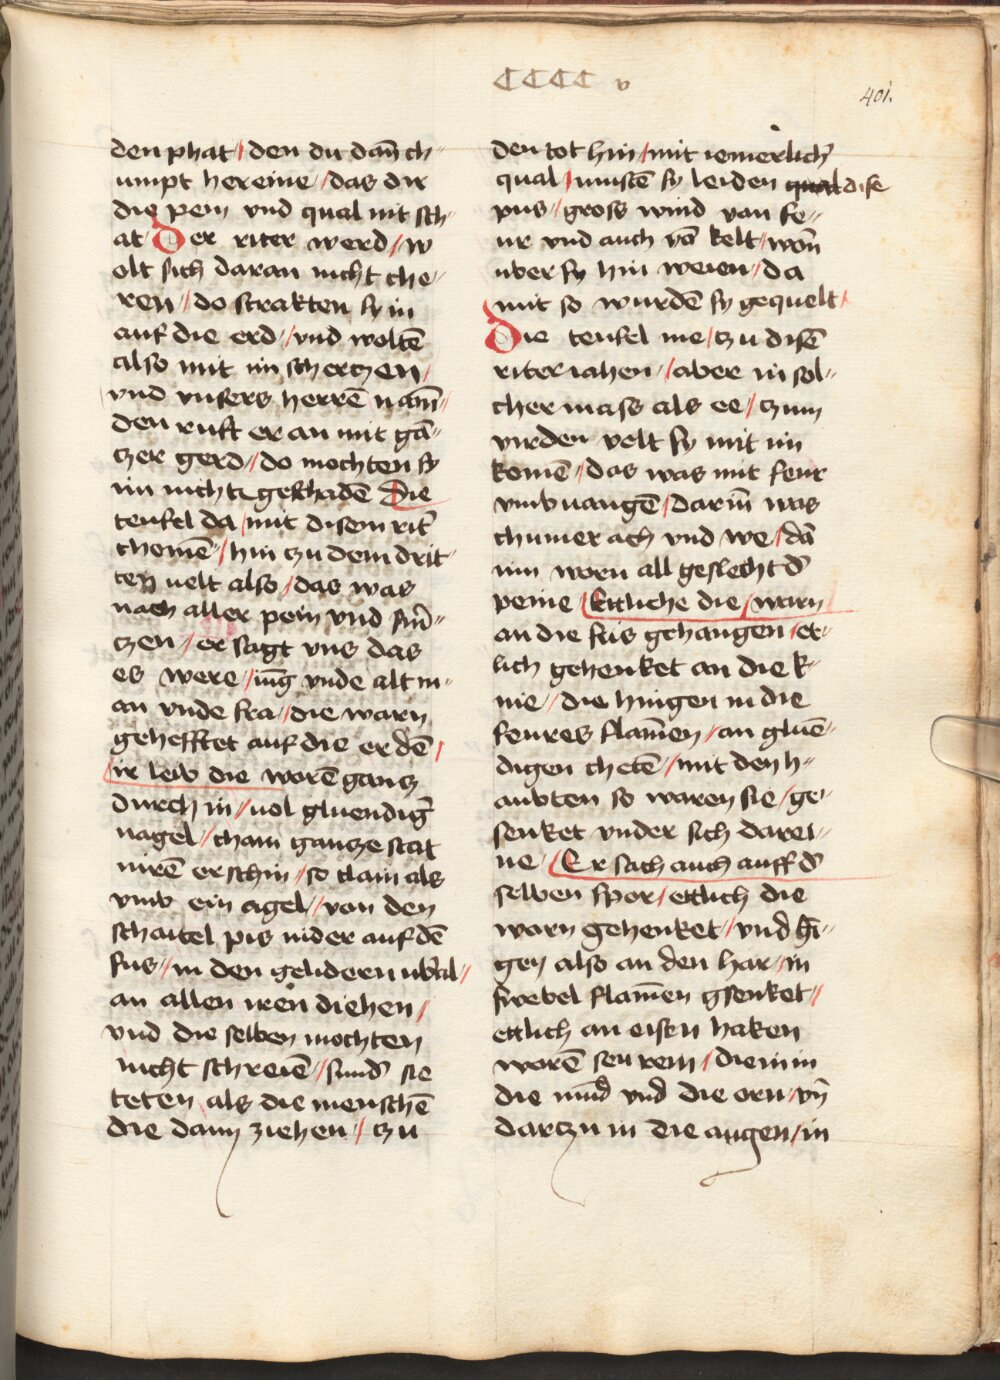 CCCC v
401.
den phat / den du dañ ch-
umpt her eine / das dir
die pein vnd qual nit sch-
at Der riter werd / w
olt sich daran nicht che-
ren / do strakten sy in
auf die erd / vnd woltē
also mit im schertzen /
vnd vnsers herrē nam̄
den ruft er an mit gā-
czer gerd / do mochten sy
im nicht geschadē Die
teufel da / mit disem rit᷑
chomē / hin czu dem drit
ten velt also / das was
nach aller pein vnd sm̄-
czen / er sagt vns das
es were / iūg vnde alt m-
an vnde fra / die warn
gehefftet auf die er dē /
ir leib die worē gancz
durch in / vol gluendig᷑
nagel / cham gancze stat
nirē erschin / so clain als
vmb ein agel / von den
schaitel pis nider auf dē
fus / in den gelidern vb᷑al /
an allen iren diehen /
vnd die selben mochten
nicht schreiē / sund᷑ sie
teten als die menschē
die dann ziehen / czu
den tot hin / mit iemerlich᷑
qual / mustē sy leiden qual dise
pus / gross wind von fe-
ur vnd auch vō kelt / won̄
vber sy hin weien / da
mit so wurdē sy gequelt /
Die teufel me / czu disē
riter iahen / aber in sol-
cher mass als ee / czum
virden velt sy mit im
komē / das was mit feur
vmbuangē / darin̄ was
chumer ach vnd we / dā
inn worn all geslecht d᷑
peine / Ettliche die / warn
an die füs gehangen / et-
lich gehenket an die k-
nie / die hingen in die
feures flam̄en / an gluē-
digen chetē / mit den h-
aubten so waren sie / ge-
senket vnder sich darei-
ne / Er sach auch auff d᷑
selben spor / ettlich die
warn gehenket / vnd hi-
gen also an den har / in
swebel flam̄en gsenket /
ettlich an eisen haken
worē seu rein / die in in
die mūd vnd die orn / vn̄
darczu in die augen / in